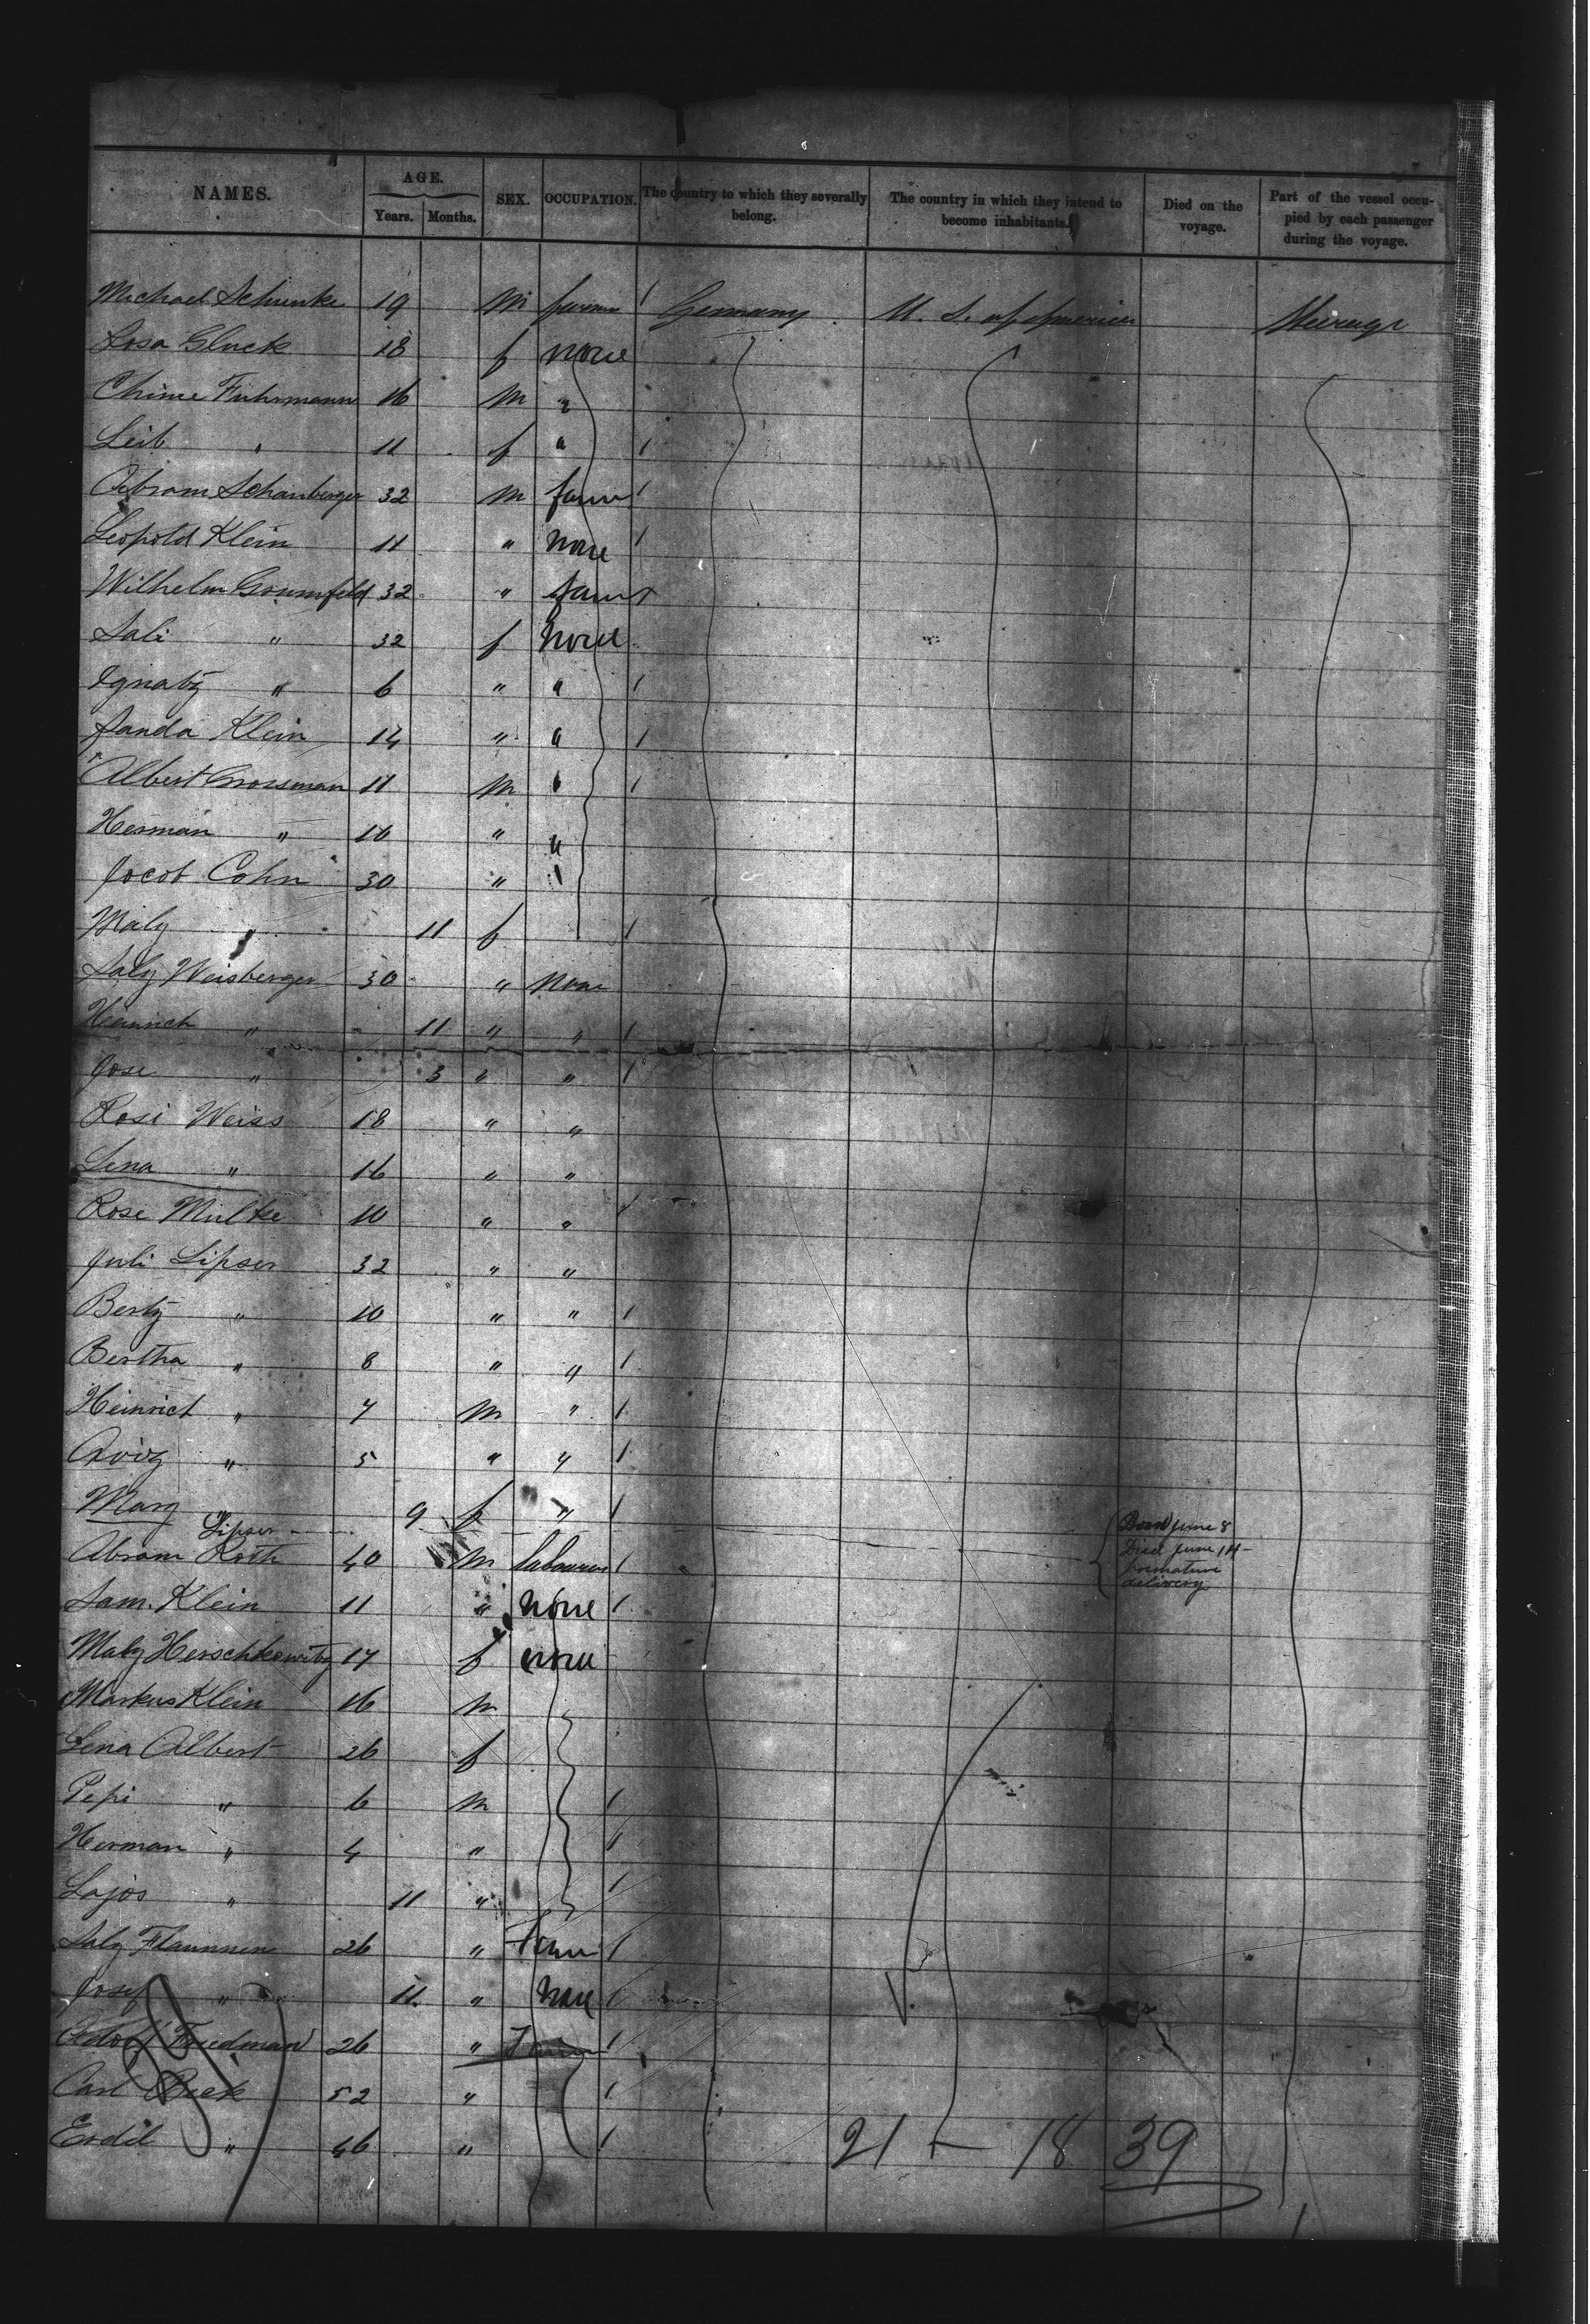 NAMES. AGE. Years. Months. SEX. OCCUPATION. The country to which they severally belong. The country in which they intend to become inhabitants. Died on the voyage. Part of the vessel occupied by each passenger during the voyage.
Michael Schunke 19 m Germany U. S. of America
Rosa Gluck 18 f none
Chime Fuhrmann 16 m "
Leib " 11 f "
Abram Schanberger 32 m farm
Leopold Klein 11 " none
Wilhelm Grumfeld 32 " farm
Sali " 32 f none
Ignatz " 6 " "
Janda Klein 14 " "
Albert Grossman 11 m "
Herman " 16 " "
Jocob Cohn 30 "
Maly " 11 f
Saly Weisberger 30 " none
Heinrich " 11 " "
Jose " 3 " "
Rosi Weiss 18 " "
Lena " 16 " "
Rose Mulke 10 " "
Juli Lipser 32 " "
Berty " 10 " "
Bertha " 8 " "
Heinrich " 7 m "
" 5 " "
Mary " 9 f "
Lipser Born June 8
Abram Roth 40 m labourer Died June 14
premature
delivery
Sam. Klein 11 " none
Maly Herschkowitz 17 f none
Markus Klein 16 m
Lena Albert 26 f
Pepi " 6 m
Herman " 4 "
Lajos " 11 "
Saly 26 " Farm
Josef " 11 " none
Adolf Friedman 26 "
Carl Beck 52 "
" 46 "
21 — 18 39